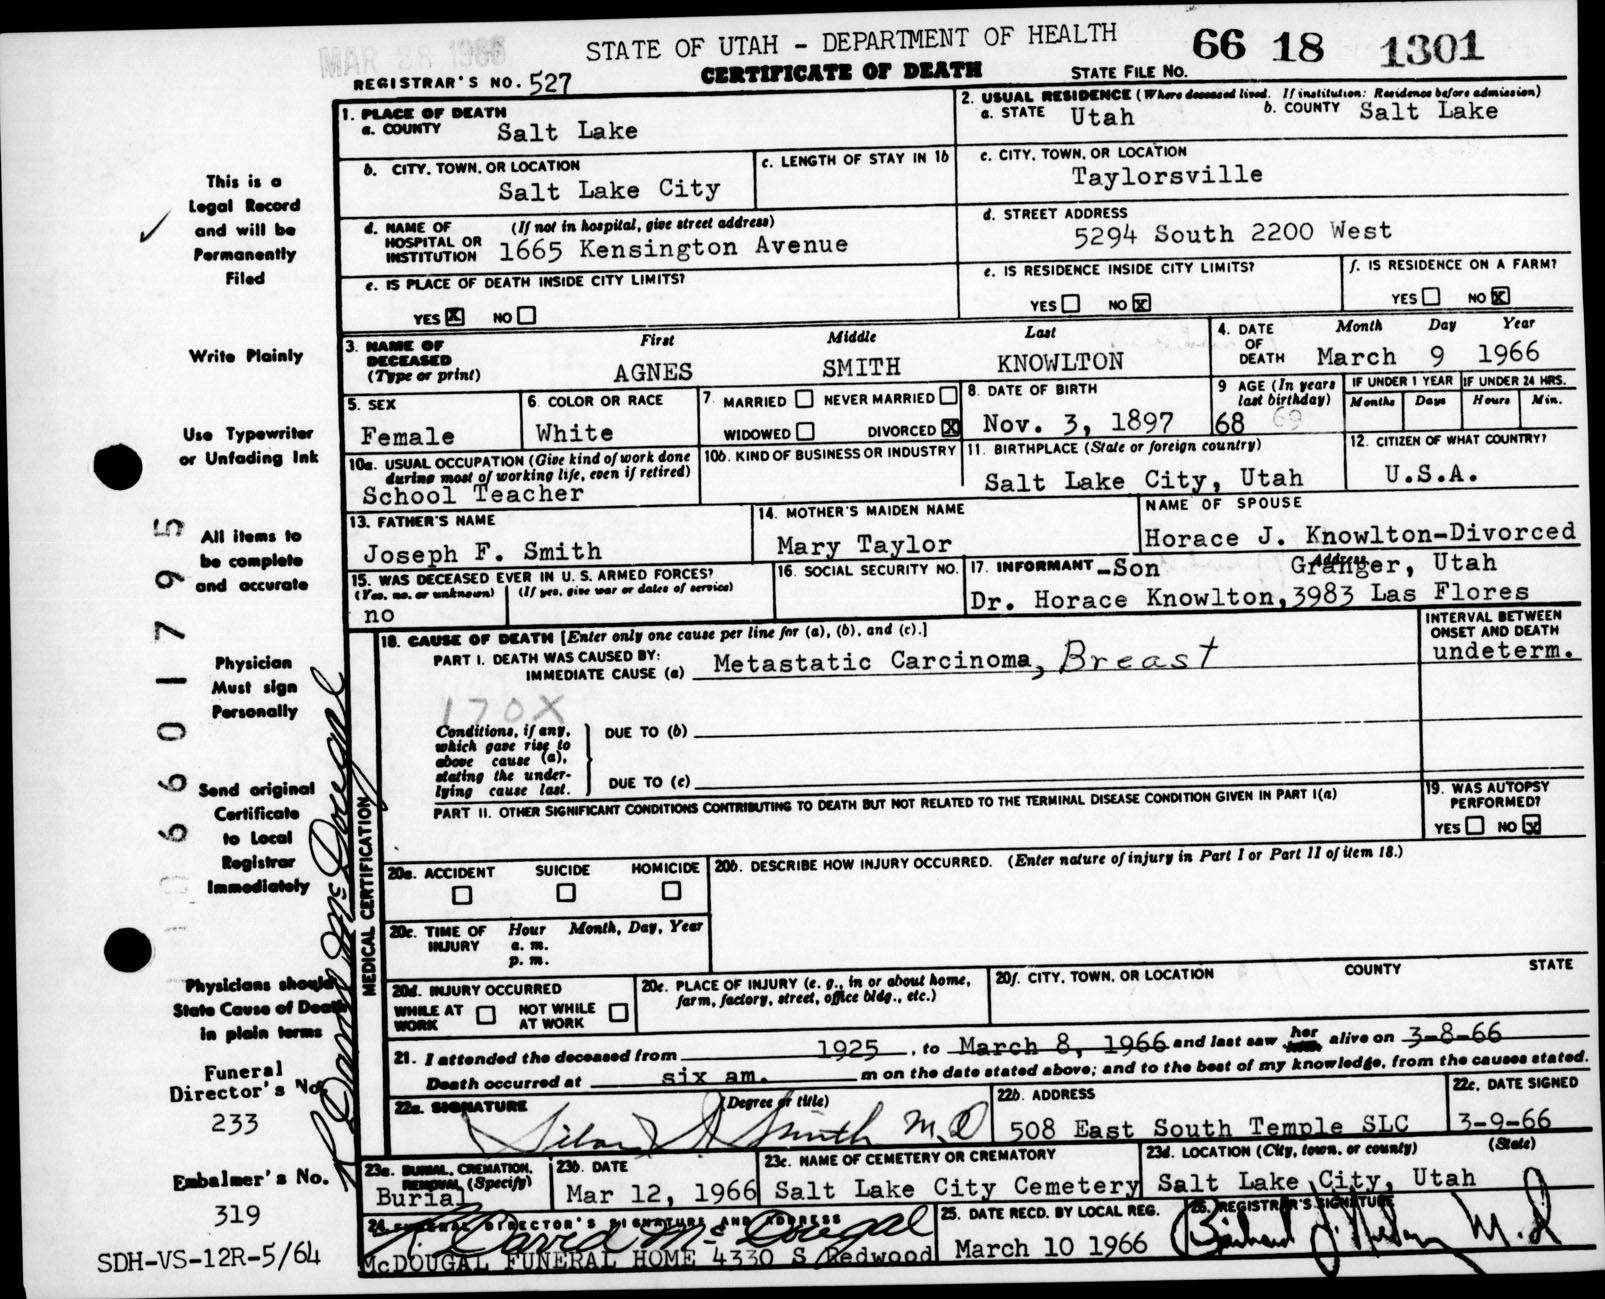 MAR 28 1966
STATE OF UTAH - DEPARTMENT OF HEALTH
66 18 1301
REGISTRAR'S NO. 527
CERTIFICATE OF DEATH
STATE FILE NO.
1. PLACE OF DEATH
a. COUNTY Salt Lake
2. USUAL RESIDENCE (Where deceased lived. If institution: Residence before admission)
a. STATE Utah b. COUNTY Salt Lake
b. CITY, TOWN, OR LOCATION
Salt Lake City
c. LENGTH OF STAY IN 1b
c. CITY, TOWN, OR LOCATION
Taylorsville
d. NAME OF HOSPITAL OR INSTITUTION (If not in hospital, give street address)
1665 Kensington Avenue
d. STREET ADDRESS
5294 South 2200 West
e. IS PLACE OF DEATH INSIDE CITY LIMITS?
YES X NO
e. IS RESIDENCE INSIDE CITY LIMITS?
YES NO X
f. IS RESIDENCE ON A FARM?
YES NO X
3. NAME OF DECEASED (Type or print)
First Middle Last
AGNES SMITH KNOWLTON
4. DATE OF DEATH Month Day Year
March 9 1966
5. SEX
Female
6. COLOR OR RACE
White
7. MARRIED NEVER MARRIED
WIDOWED DIVORCED X
8. DATE OF BIRTH
Nov. 3, 1897
9 AGE (In years last birthday)
68 69
IF UNDER 1 YEAR IF UNDER 24 HRS.
Months Days Hours Min.
10a. USUAL OCCUPATION (Give kind of work done during most of working life, even if retired)
School Teacher
10b. KIND OF BUSINESS OR INDUSTRY
11. BIRTHPLACE (State or foreign country)
Salt Lake City, Utah
12. CITIZEN OF WHAT COUNTRY?
U.S.A.
13. FATHER'S NAME
Joseph F. Smith
14. MOTHER'S MAIDEN NAME
Mary Taylor
NAME OF SPOUSE
Horace J. Knowlton-Divorced
15. WAS DECEASED EVER IN U. S. ARMED FORCES?
(Yes, no, or unknown) (If yes, give war or dates of service)
no
16. SOCIAL SECURITY NO.
17. INFORMANT -Son Address Granger, Utah
Dr. Horace Knowlton, 3983 Las Flores
18. CAUSE OF DEATH [Enter only one cause per line for (a), (b), and (c).]
INTERVAL BETWEEN ONSET AND DEATH
undeterm.
PART I. DEATH WAS CAUSED BY:
IMMEDIATE CAUSE (a) Metastatic Carcinoma, Breast
170X
Conditions, if any, which gave rise to above cause (a), stating the underlying cause last.
DUE TO (b)
DUE TO (c)
PART II. OTHER SIGNIFICANT CONDITIONS CONTRIBUTING TO DEATH BUT NOT RELATED TO THE TERMINAL DISEASE CONDITION GIVEN IN PART I(a)
19. WAS AUTOPSY PERFORMED?
YES NO X
20a. ACCIDENT SUICIDE HOMICIDE
20b. DESCRIBE HOW INJURY OCCURRED. (Enter nature of injury in Part I or Part II of item 18.)
20c. TIME OF INJURY Hour Month, Day, Year
a. m.
p. m.
20d. INJURY OCCURRED
WHILE AT WORK NOT WHILE AT WORK
20e. PLACE OF INJURY (e. g., in or about home, farm, factory, street, office bldg., etc.)
20f. CITY, TOWN, OR LOCATION COUNTY STATE
21. I attended the deceased from 1925, to March 8, 1966 and last saw her alive on 3-8-66
Death occurred at six am. m on the date stated above; and to the best of my knowledge, from the causes stated.
22a. SIGNATURE (Degree or title)
Smith M.D
22b. ADDRESS
508 East South Temple SLC
22c. DATE SIGNED
3-9-66
23a. BURIAL, CREMATION, REMOVAL (Specify)
Burial
23b. DATE
Mar 12, 1966
23c. NAME OF CEMETERY OR CREMATORY
Salt Lake City Cemetery
23d. LOCATION (City, town, or county) (State)
Salt Lake City, Utah
24. FUNERAL DIRECTOR'S SIGNATURE AND ADDRESS
R. David McDougal
McDOUGAL FUNERAL HOME 4330 S Redwood
25. DATE RECD. BY LOCAL REG.
March 10 1966
26. REGISTRAR'S SIGNATURE
M.D
This is a
Legal Record
and will be
Permanently
Filed
Write Plainly
Use Typewriter
or Unfading Ink
All items to
be complete
and accurate
Physician
Must sign
Personally
Send original
Certificate
to Local
Registrar
Immediately
Physicians should
State Cause of Death
in plain terms
Funeral
Director's No.
233
Embalmer's No.
319
SDH-VS-12R-5/64
MEDICAL CERTIFICATION
R David McDougal